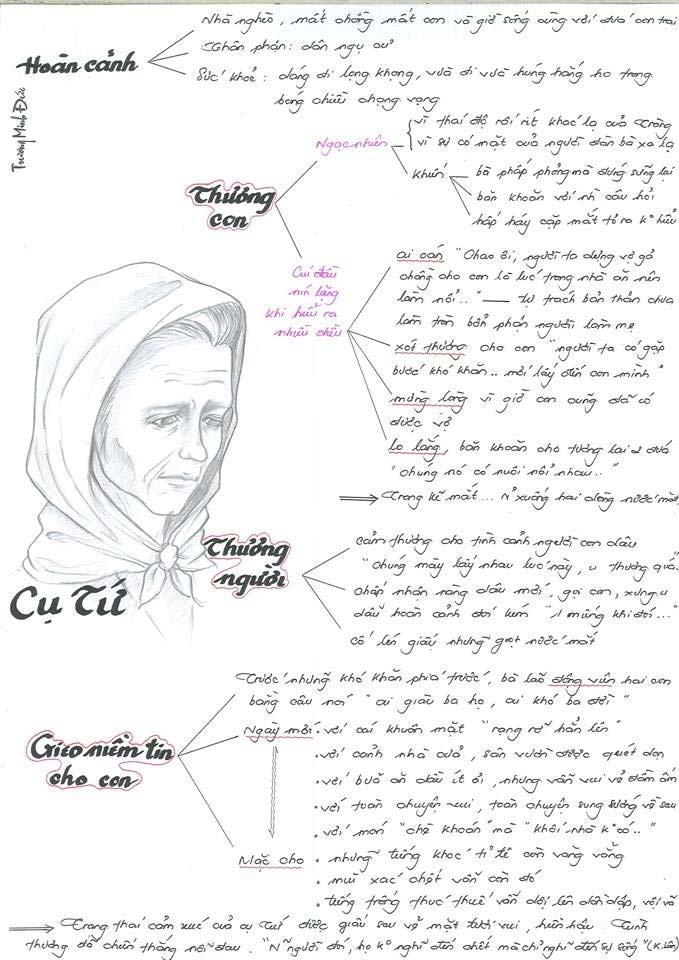 Nhà nghèo, mất chồng mất con và giờ sống cùng với đứa con trai
Hoàn cảnh
Thân phận: dân ngụ cư
Sức khoẻ: dáng đi lọng khọng, vừa đi vừa húng hắng ho trong
bóng chiều chạng vạng
Trương Minh Đức
vì thái độ rối rít khác lạ của Tràng
Ngạc nhiên
vì sự có mặt của người đàn bà xa lạ
Khiến
bà phấp phỏng mà đứng sững lại
băn khoăn với nh câu hỏi
hấp háy cặp mắt tỏ ra k° hiểu
Thương
con
Cúi đầu
nín lặng
khi hiểu ra
nhiều điều
ai oán "Chao ôi, người ta dựng vợ gả
chồng cho con là lúc trong nhà ăn nên
làm nổi.." — tự trách bản thân chưa
làm tròn bổn phận người làm mẹ
xót thương cho con "người ta có gặp
bước khó khăn.. mới lấy đến con mình"
mừng lòng vì giờ con cũng đã có
được vợ
lo lắng, băn khoăn cho tương lai 2 đứa
"chúng nó có nuôi nổi nhau.."
⟹ Trong kẽ mắt... rỉ xuống hai dòng nước mắt
Thương
người
cảm thương cho tình cảnh người con dâu
"chúng mày lấy nhau lúc này, u thương quá.
chấp nhận nàng dâu mới, gọi con, xưng u
dẫu hoàn cảnh đói kém "1 miếng khi đói..."
cố lén giấu những giọt nước mắt
Cụ Tứ
Trước những khó khăn phía trước, bà lão động viên hai con
bằng câu nói "ai giàu ba họ, ai khó ba đời"
Gieo niềm tin
cho con
Ngày mới • với cái khuôn mặt "rạng rỡ hẳn lên"
• với cảnh nhà cửa, sân vườn được quét dọn
• với bữa ăn dẫu ít ỏi, nhưng vẫn vui vẻ đầm ấm
• với toàn chuyện vui, toàn chuyện sung sướng về sau
• với món "chè khoán" mà "khối nhà k° có.."
Mặc cho • những tiếng khóc tỉ tê còn vang vẳng
• mùi xác chết vẫn còn đó
• tiếng trống thúc thuế vẫn dội lên dồn dập, vội vã
⟹ Trạng thái cảm xúc của cụ Tứ được giấu sau vẻ mặt tươi vui, hiền hậu. Tình
thương đã chiến thắng nỗi đau. "N người đói, họ k° nghĩ đến chết mà chỉ nghĩ đến sự sống" (K.Lân)